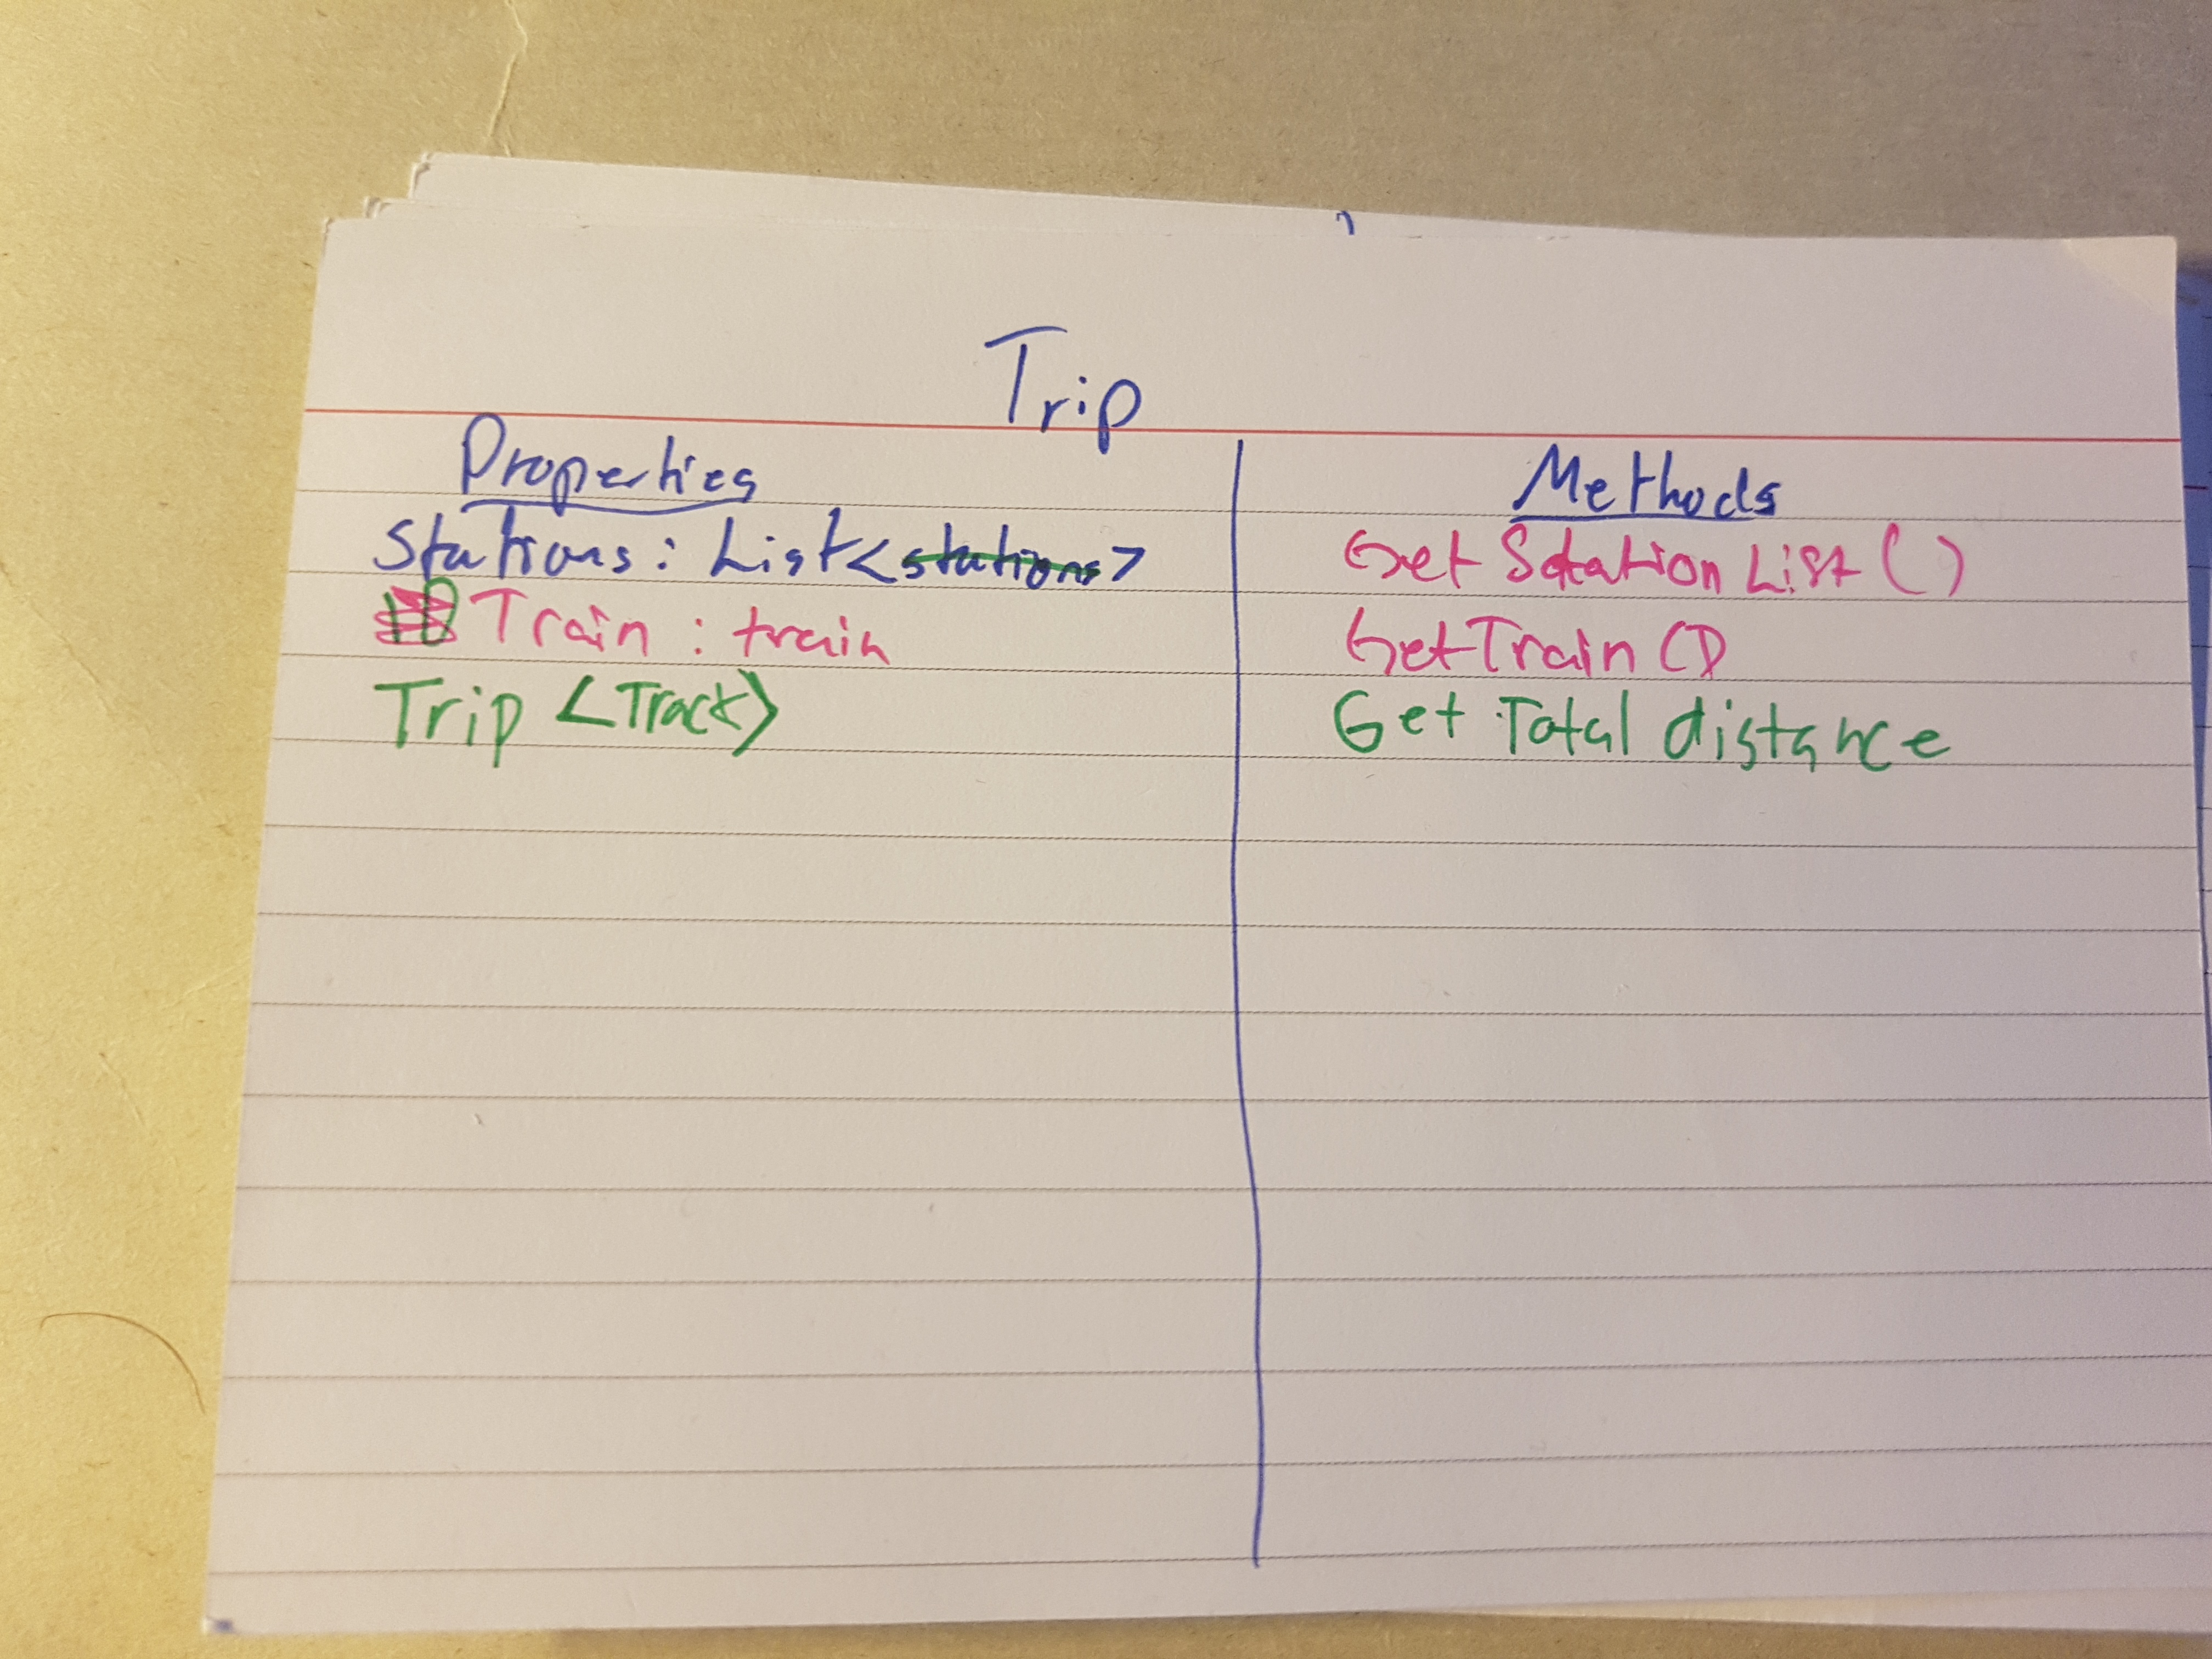 Trip
Properties
Stations : List<stations>
Train : train
Trip <Track>
Methods
Get Sdation List ()
GetTrain ()
Get Total distance